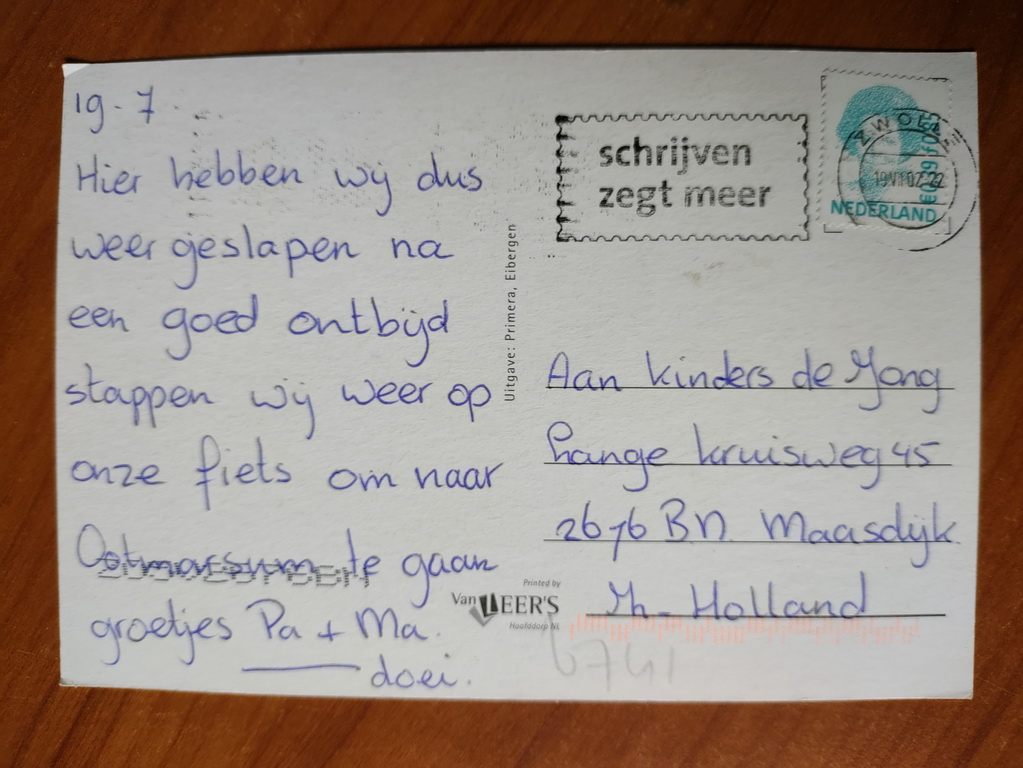 19-7.
Hier hebben wij dus
weer geslapen na
een goed ontbijd
stappen wij weer op
onze fiets om naar
Ootmarsum te gaan
groetjes Pa + Ma.
doei.
Uitgave: Primera, Eibergen
Printed by
Van LEER'S
Hoofddorp NL
schrijven
zegt meer
ZWOLLE
€0,39
NEDERLAND
Aan kinders de Jong
Lange kruisweg 45
2676 BN Maasdijk.
Zh- Holland
6741